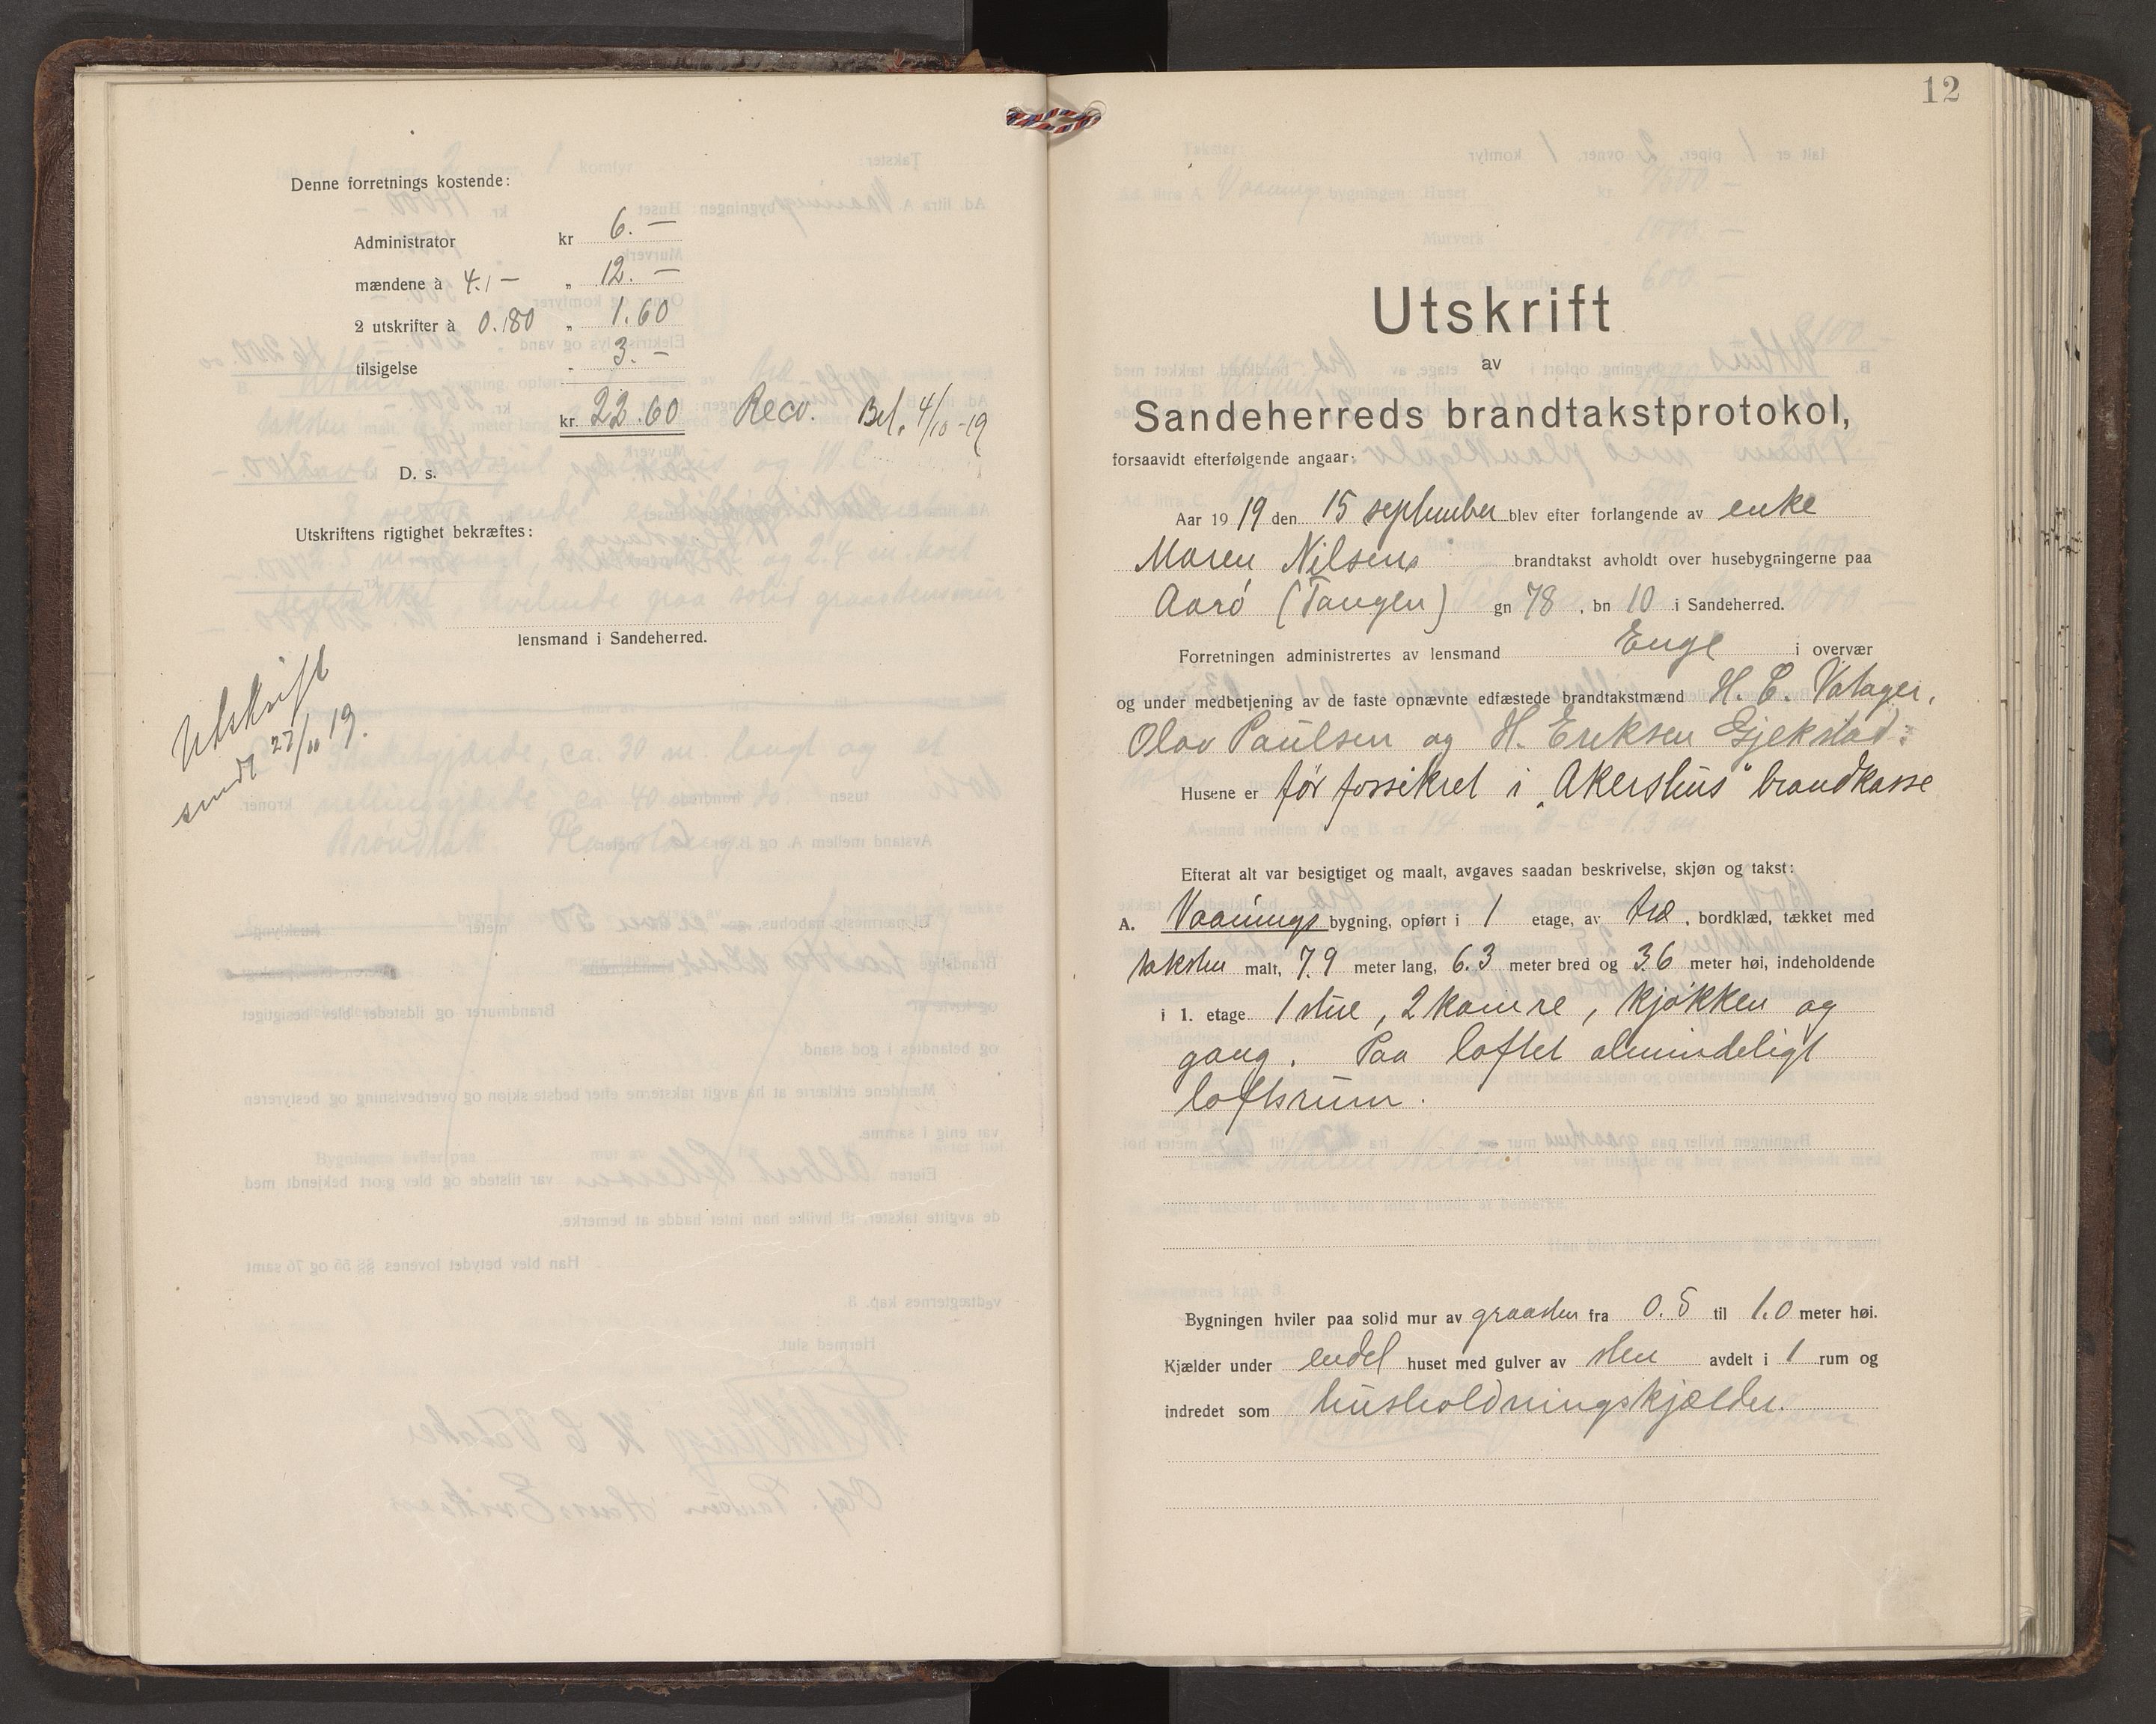 Denne forretnings kostende:
Administrator kr 6. —
mændene à 4.1 — „ 12. —
2 utskrifter à 0.180 „ 1.60
tilsigelse „ 3. —
kr. 22.60 Recv. Bet. 4/10 -19
D. s.
Utskriftens rigtighet bekræftes:
lensmand i Sandeherred.
Utskrift
sendt 27/11 19.
12
Utskrift
av
Sandeherreds brandtakstprotokol,
forsaavidt efterfølgende angaar:
Aar 1919 den 15 september blev efter forlangende av enke
Maren Nilsens brandtakst avholdt over husebygningerne paa
Aarö (Tangen) gn 78, bn 10 i Sandeherred.
Forretningen administrertes av lensmand Enge i overvær
og under medbetjening av de faste opnævnte edfæstede brandtakstmænd H. C. Vatager,
Olav Paulsen og H. Eriksen Gjekstad.
Husene er før forsikret i „Akershus" brandkasse
Efterat alt var besigtiget og maalt, avgaves saadan beskrivelse, skjøn og takst:
A. Vaanings bygning, opført i 1 etage, av træ, bordklæd, tækket med
taksten malt, 7.9 meter lang, 6.3 meter bred og 3.6 meter høi, indeholdende
i 1. etage 1 stue, 2 kamre, kjøkken og
gang. Paa loftet almindeligt
loftsrum.
Bygningen hviler paa solid mur av graasten fra 0.5 til 1.0 meter høi.
Kjælder under endel huset med gulver av sten avdelt i 1 rum og
indredet som husholdningskjælder.